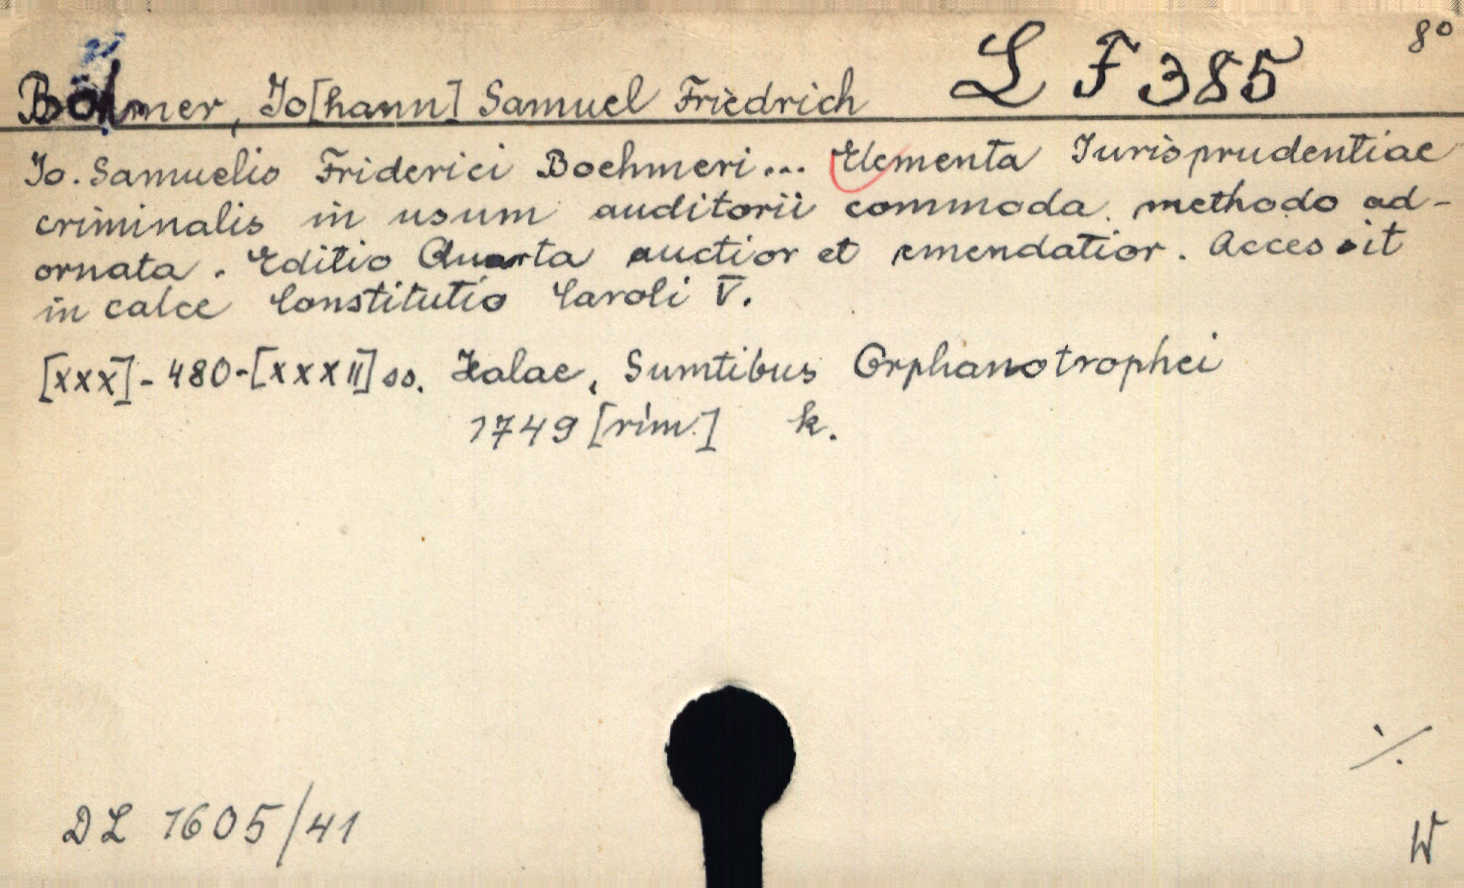 8°
L F 385
Böhmer, Jo[hann] Samuel Friedrich
Jo. Samuelis Friderici Boehmeri... Elementa Jurisprudentiae
criminalis in usum auditorii commoda methodo ad-
ornata. Editio Quarta auctior et emendatior. Accessit
in calce Constitutio Caroli V.
[XXX]-480-[XXXII] ss. Halae, Sumtibus Orphanotrophei
1749 [rim.] k.
DL 1605/41
W